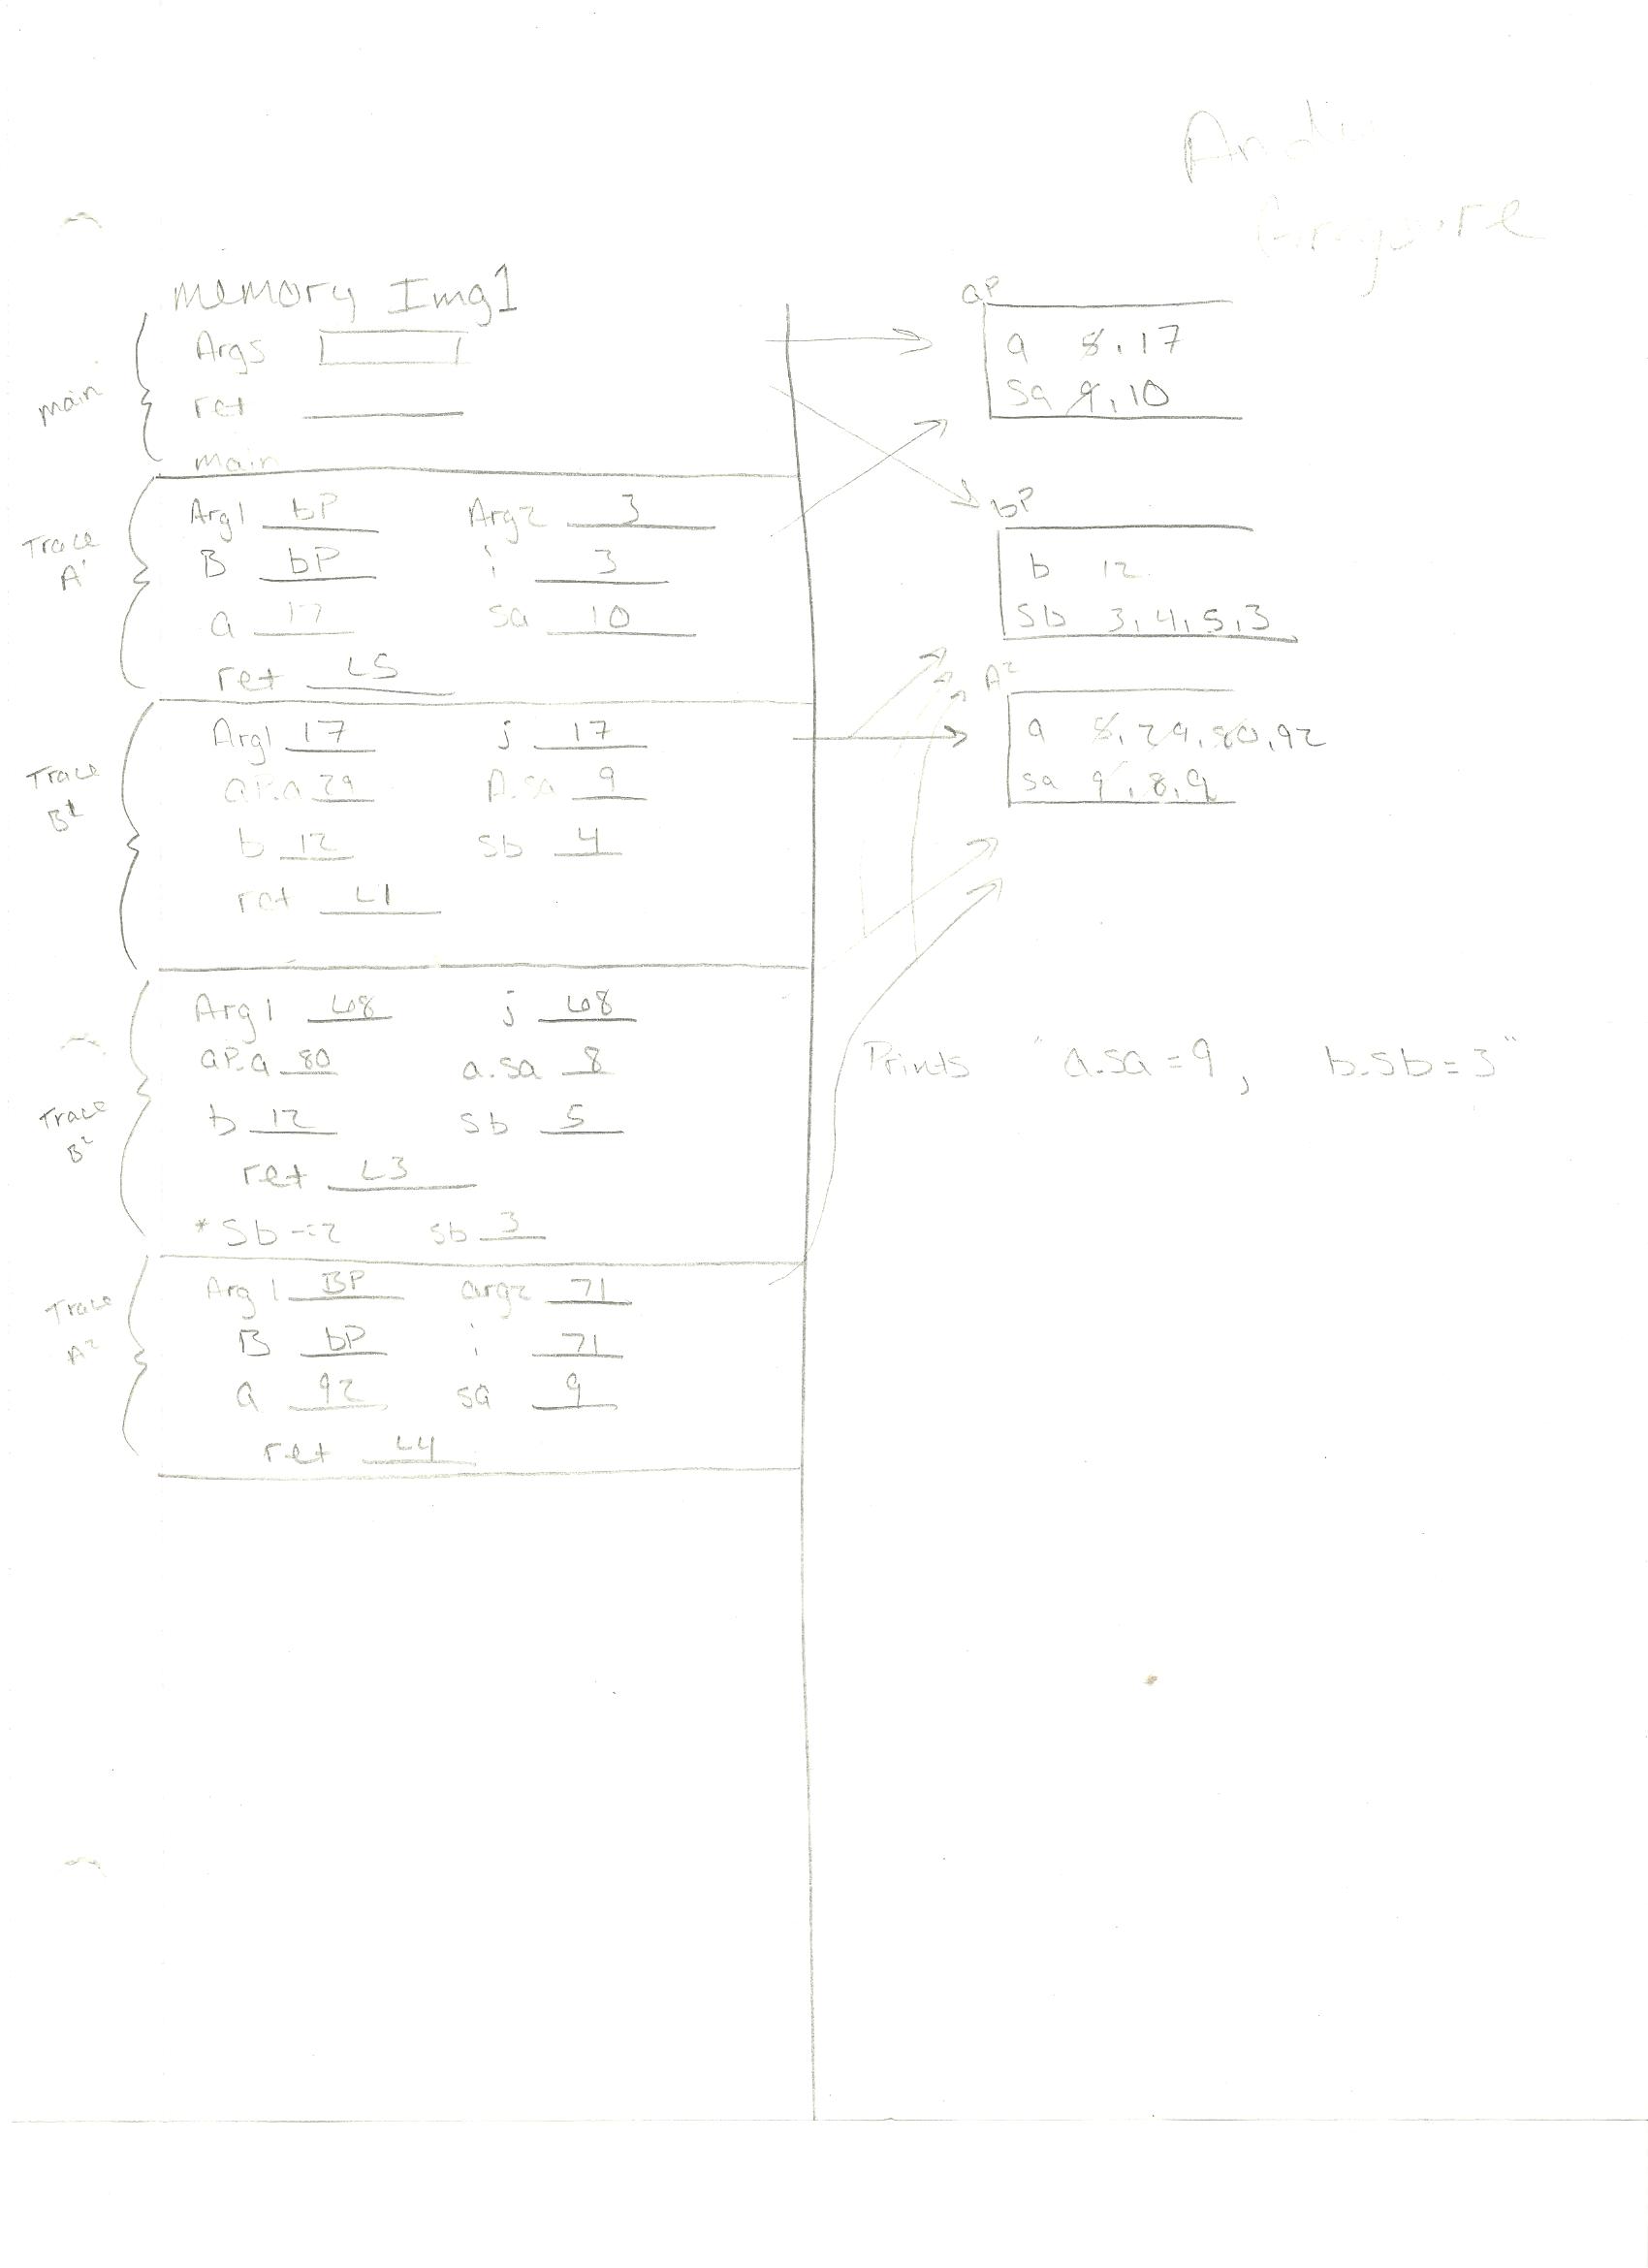 memory Img1
main
Args
ret
main
Trace A1
Arg1 bP Arg2 3
B bP i 3
a 17 sa 10
ret L5
Trace B1
Arg1 17 j 17
aP.a 29 A.sa 9
b 12 sb 4
ret L1
Trace B2
Arg1 68 j 68
aP.a 80 a.sa 8
b 12 sb 5
ret L3
*Sb-=2 sb 3
Trace A2
Arg1 BP arg2 71
B bP i 71
a 92 sa 9
ret L4
aP
a 8, 17
sa 9, 10
bP
b 12
Sb 3, 4, 5, 3
A2
a 8, 29, 80, 92
sa 9, 8, 9
Prints "a.sa=9, b.sb=3"